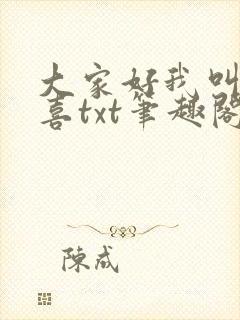 大家好我叫
喜txt笔趣阁
陈成